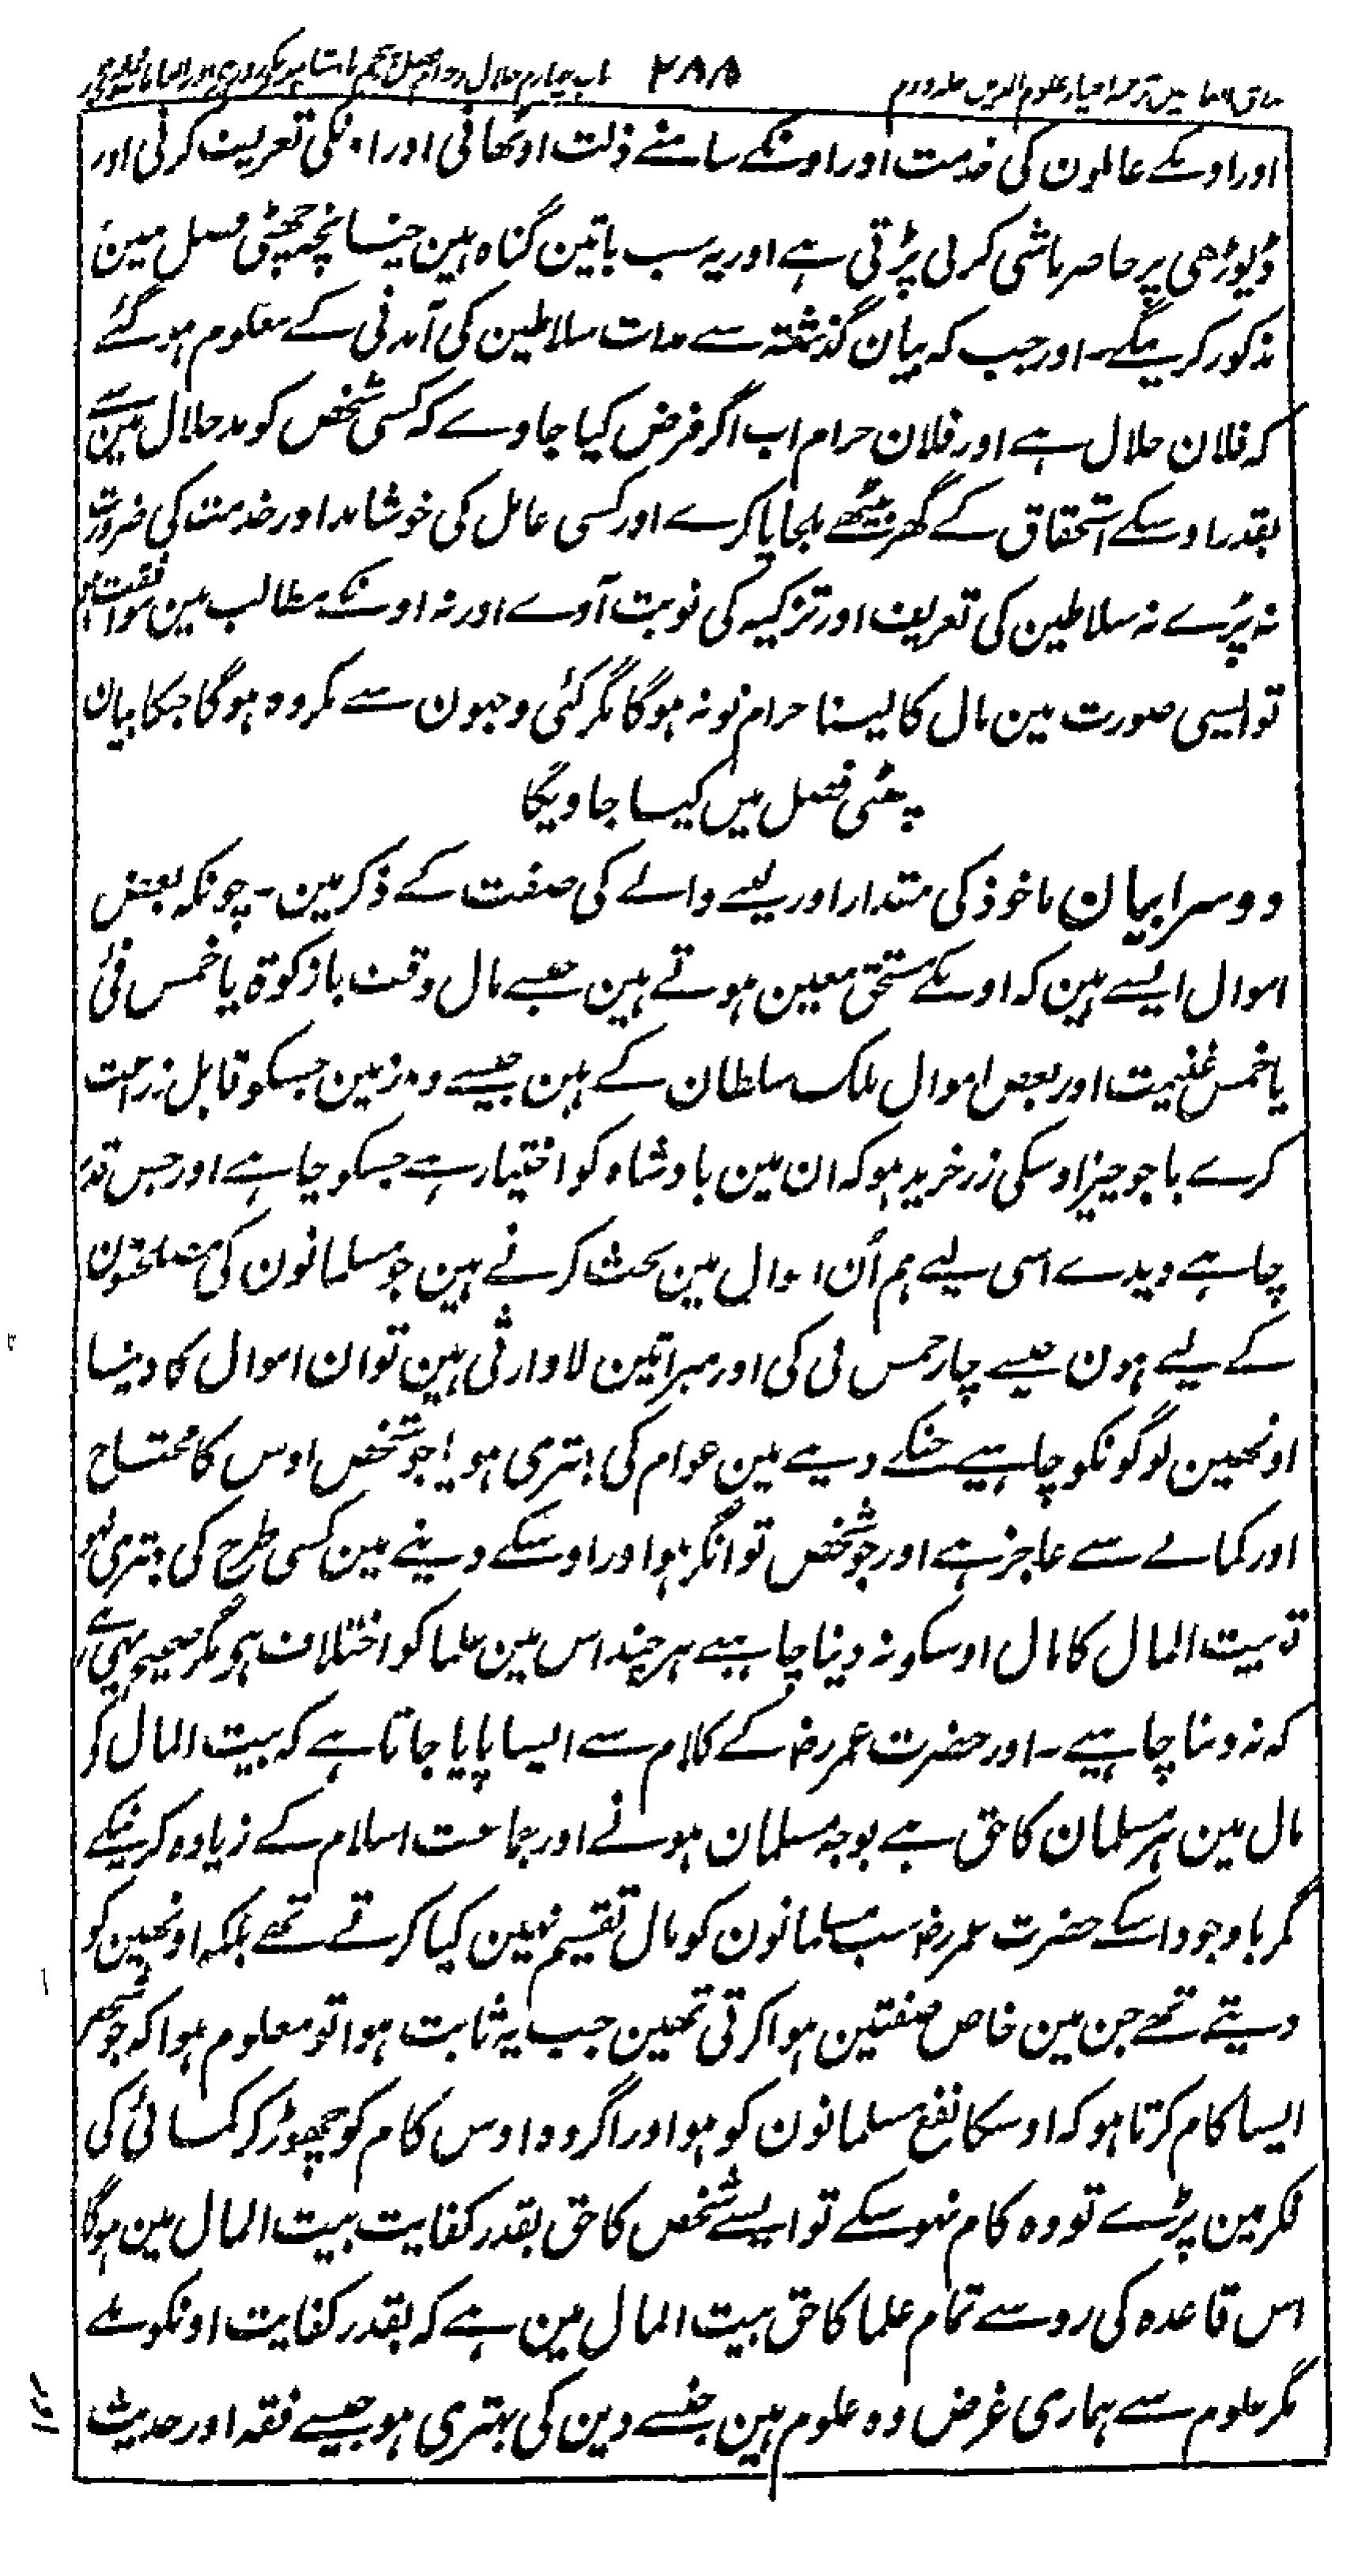 مذاق العارفین ترجمہ احیاء علوم الدین جلد دوم ۲۸۸ باب چہارم حلال و حرام فصل پنجم
اور اوسکے عاملون کی خدمت اور اونکے سامنے ذلت اوٹھانی اور اونکی تعریف کرنی اور
ڈیوڑھی پر حاضر باشی کرنی پڑتی ہے اور یہ سب باتین گناہ ہین چنانچہ چھٹی فصل مین
مذکور کرینگے۔ اور جب کہ بیان گذشتہ سے مدات سلاطین کی آمدنی کے معلوم ہو گئے
کہ فلان حلال ہے اور فلان حرام اب اگر فرض کیا جاوے کہ کسی شخص کو مد حلال مین سے
بقدر اوسکے استحقاق کے گھر بیٹھے ملجایا کرے اور کسی عامل کی خوشامد اور خدمت کی ضرورت
نہ پڑے نہ سلاطین کی تعریف اور تزکیہ کی نوبت آوے اور نہ اونکے مطالب مین موافقت ہو
تو ایسی صورت مین مال کا لینا حرام تو نہ ہوگا مگر کئی وجہون سے مکروہ ہوگا جسکا بیان
چھٹی فصل میں کیا جاویگا
دوسرا بیان ماخوذ کی مقدار اور لینے والے کی صفت کے ذکر مین۔ چونکہ بعض
اموال ایسے ہین کہ اونکے مستحق معین ہوتے ہین جیسے مال وقف یا زکوۃ یا خمس فئ
یا خمس غنیمت اور بعض اموال ملک سلطان کے ہین جیسے وہ زمین جسکو قابل زراعت
کرے یا جو چیز اوسکی زر خرید ہو کہ ان مین بادشاہ کو اختیار ہے جسکو چاہے اور جس قدر
چاہے دیدے اسی لیے ہم اُن اموال مین بحث کرتے ہین جو مسلمانون کی مصلحتون
کے لیے ہون جیسے چار خمس فی کی اور میراثین لاوارثی ہین تو ان اموال کا دینا
اونھین لوگونکو چاہیے جنکے دینے مین عوام کی بہتری ہو یا جو شخص اوس کا محتاج
اور کمانے سے عاجز ہے اور جو شخص توانگر ہو اور اوسکے دینے مین کسی طرح کی بہتری نہو
تو بیت المال کا مال اوسکو نہ دینا چاہیے ہر چند اس مین علما کو اختلاف ہی مگر صحیح یہی ہے
کہ نہ دینا چاہیے۔ اور حضرت عمر رضؓ کے کلام سے ایسا پایا جاتا ہے کہ بیت المال کے
مال مین ہر مسلمان کا حق ہے بوجہ مسلمان ہونے اور جماعت اسلام کے زیادہ کرنیکے
مگر باوجود اسکے حضرت عمر رضؓ سب مسلمانون کو مال تقسیم نہین کیا کرتے تھے بلکہ اونھین کو
دیتے تھے جن مین خاص صفتین ہوا کرتی تھین جب یہ ثابت ہوا تو معلوم ہوا کہ جو شخص
ایسا کام کرتا ہو کہ اوسکا نفع مسلمانون کو ہو اور اگر وہ اوس کام کو چھوڑ کر کمائی کی
فکر مین پڑے تو وہ کام نہو سکے تو ایسے شخص کا حق بقدر کفایت بیت المال مین ہوگا
اس قاعدہ کی رو سے تمام علما کا حق بیت المال مین ہے کہ بقدر کفایت اونکو ملے
مگر علوم سے ہماری غرض وہ علوم ہین جنسے دین کی بہتری ہو جیسے فقہ اور حدیث